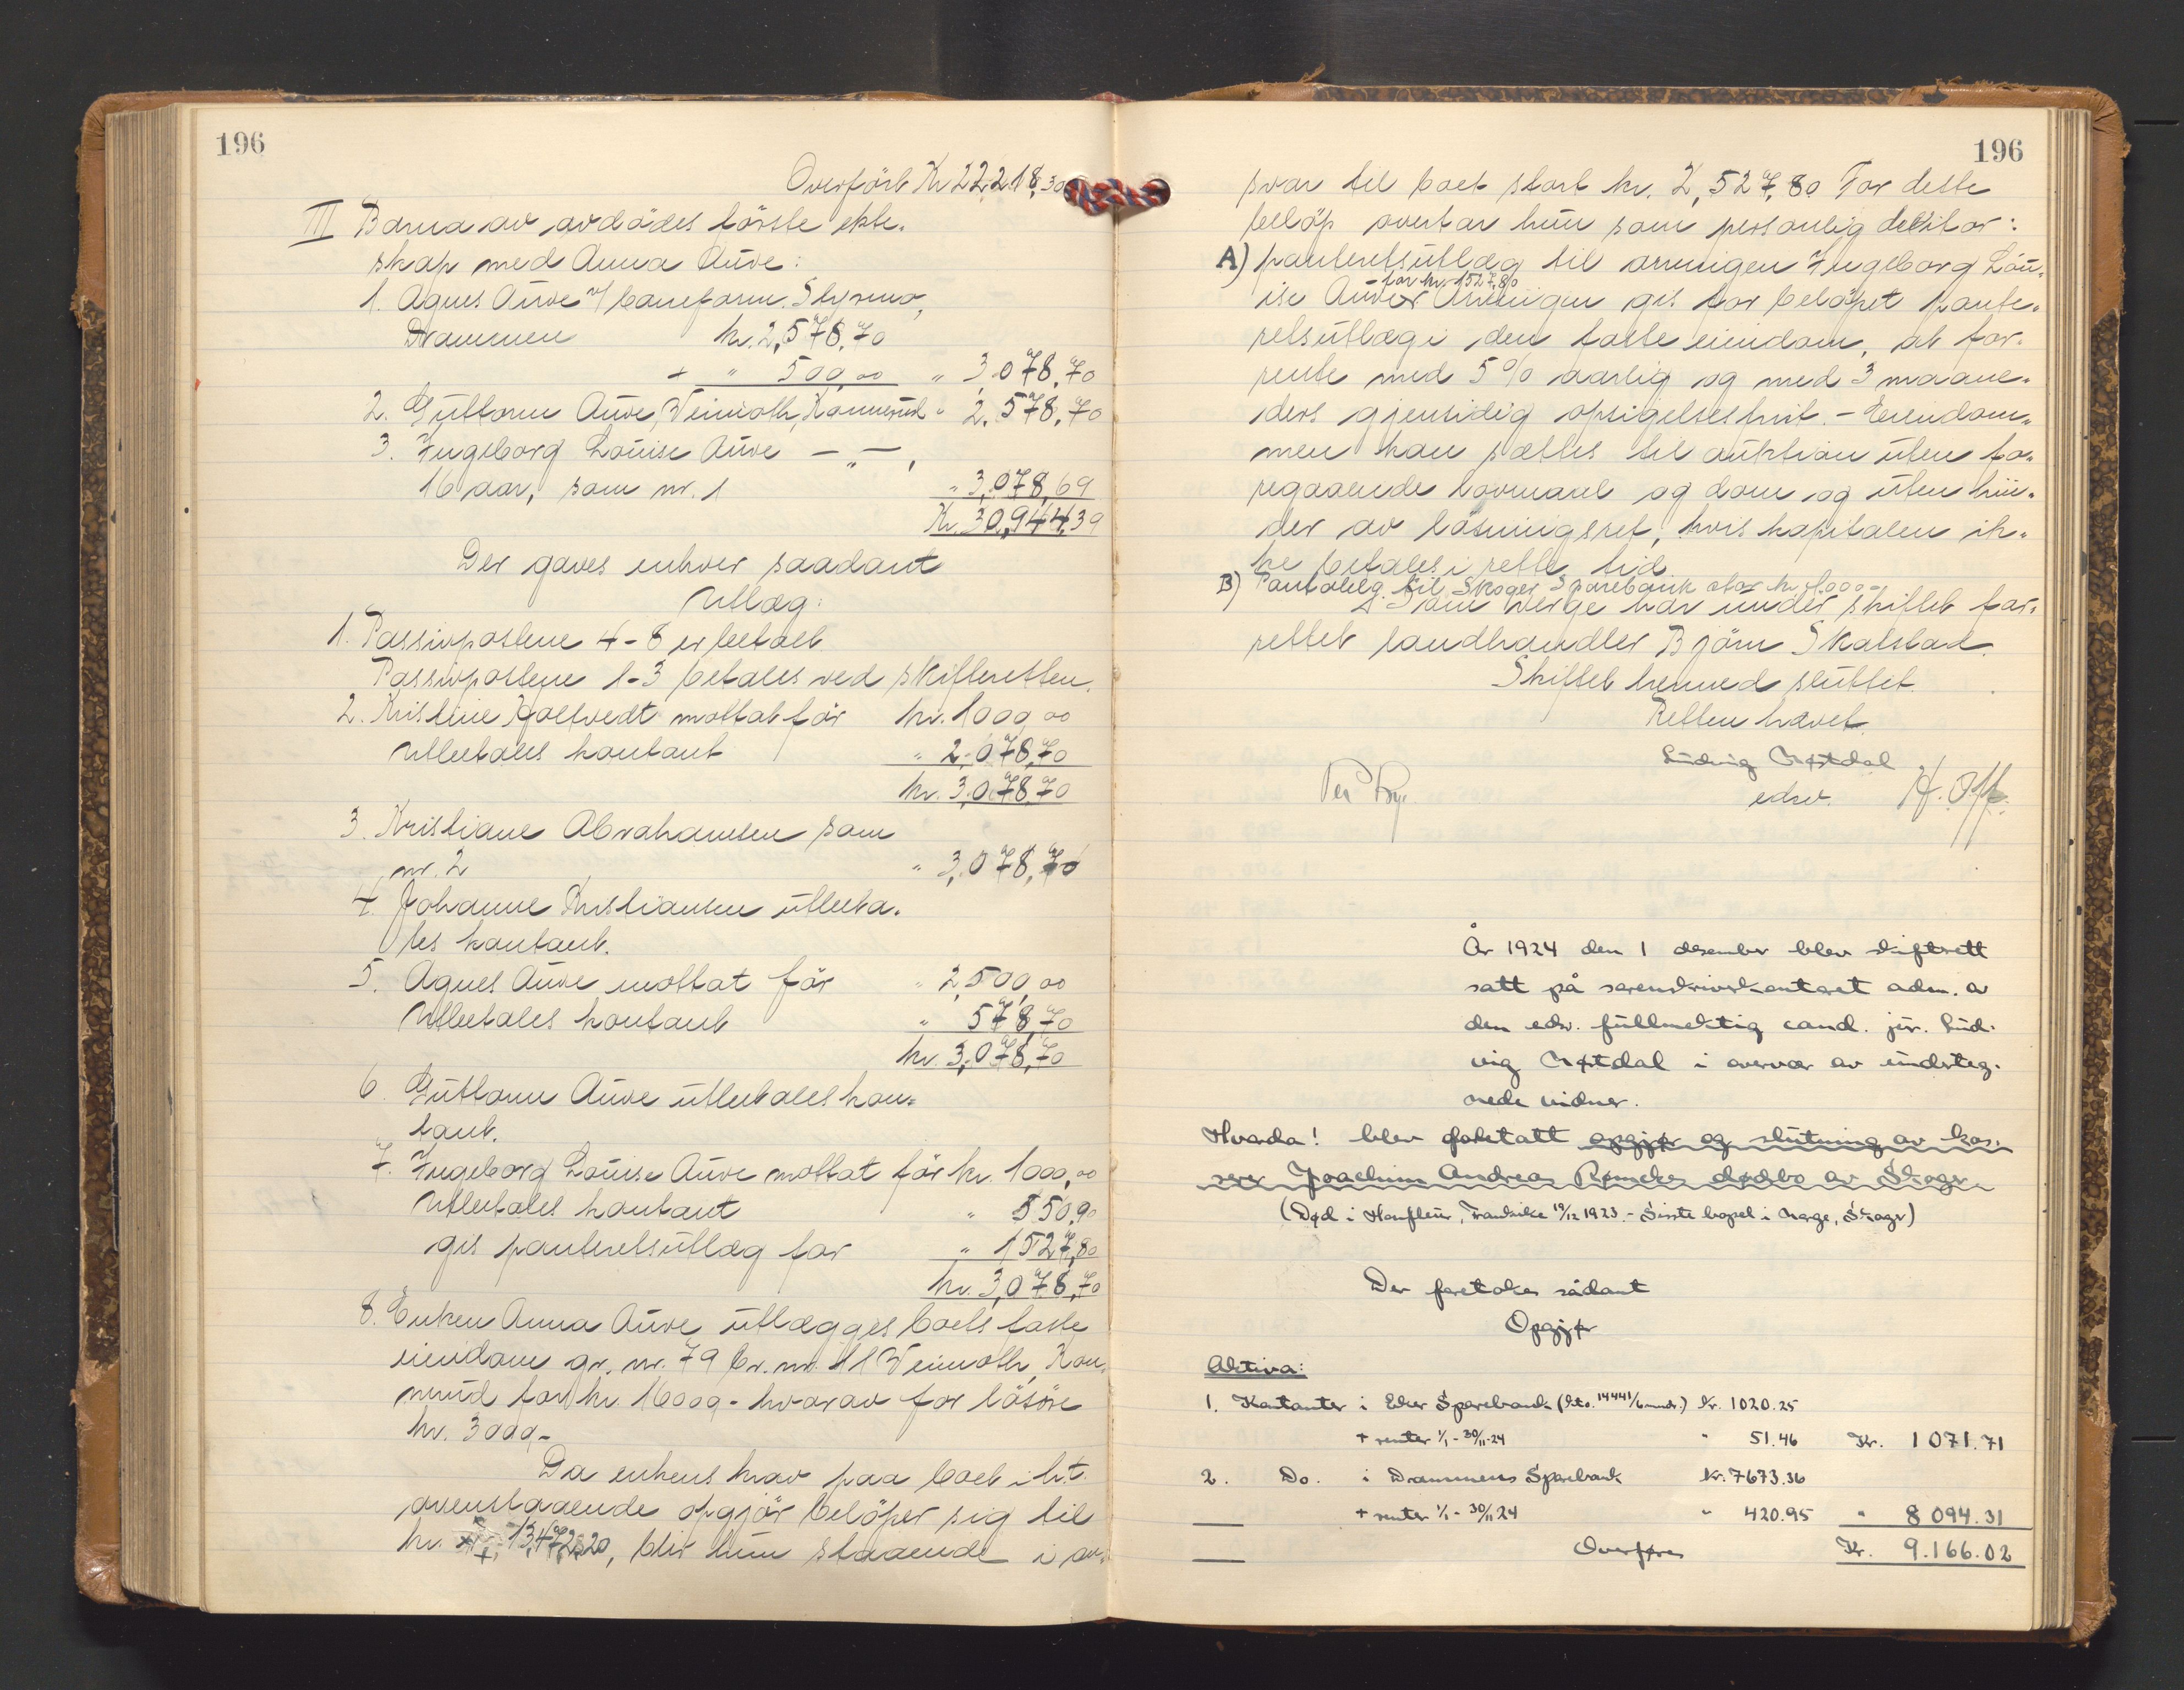 196
Overført Kr 22,218,30
III Barna av avdødes første ekte-
skap med Anna Auve:
1. Agnes Auve
Drammen kr. 2,578,70
+ " 500,00 " 3,078,70
2. Guttorm Auve, Veimoth, Konnerud " 2,578,70
3. Ingeborg Louise Auve — " —,
16 aar, som nr. 1 " 3,078,69
Kr. 30,944,39
Der gaves enhver saadant
Utlæg:
1. Passivpostene 4-8 er betalt
Passivpostene 1-3 betales ved skifteretten.
2. Kristine mottat før kr. 1000,00
Utbetales kontant " 2,078,70
kr. 3,078,70
3. Kristiane Abrahamsen som
nr. 2 " 3,078,70
4. Johanne Kristiansen utbeta-
les kontant.
5. Agnes Auve mottat før " 2,500,00
Utbetales kontant " 578,70
kr. 3,078,70
6. Guttorm Auve utbetales kon-
tant.
7. Ingeborg Louise Auve mottat før kr. 1000,00
Utbetales kontant " 550,90
gis panteretsutlæg for " 1527,80
kr. 3,078,70
8. Enken Anna Auve utlægges boets faste
eiendom gr. nr. 79 br. nr. 11 Veimoth, Kon-
nerud for kr. 16000,- hvorav for løsøre
kr. 3000,-
Da enkens krav paa boet i h.t.
ovenstaaende opgjør beløper sig til
kr. 13,472,20, blir hun staaende i an-
196
svar til boet stort kr. 2,527,80 For dette
beløp overtar hun som personlig debitor:
A) panteretsutlæg til arvingen Ingeborg Lou-
for kr. 1527,80
ise Auve. Arvingen gis for beløpet pante-
retsutlæg i den faste eiendom, at for-
rente med 5% aarlig og med 3 maane-
ders gjensidig opsigelsesfrist. - Eiendom-
men kan sættes til auktion uten fo-
regaaende lovmaal og dom og uten hin-
der av løsningsret, hvis kapitalen ik-
ke betales i rette tid.
B) Pantobleg. til Skoger Sparebank stor kr. 1.000,-
Som verge har under skiftet for-
rettet landhandler Bjørn Skalstad.
Skiftet hermed sluttet.
Retten hævet.
Ludvig Nøstdal
edsv. H. Off.
Per
År 1924 den 1 desember blev skifterett
satt på sorenskriverkontoret adm. av
den edsv. fullmektig cand. jur. Lud-
vig Nøstdal i overvær av underteg-
nede vidner.
Hvorda! blev foretatt opgjør og slutning av kas-
serer Joachim Andreas Rømckes dødsbo av Skoger
(Død i Honfleur, Frankrike 19/12 1923. - Siste bopel i Norge, Skoger)
Der foretokes sådant
Opgjør
Aktiva:
1. Kontanter i Eker Sparebank (kto. 14441/6 mndr.) kr. 1020.25
+ renter 1/1 - 30/11-24 " 51.46 Kr. 1 071.71
2. Do. i Drammens Sparebank kr. 7673.36
+ renter 1/1 - 30/11 24 " 420.95 " 8 094.31
Overføres Kr. 9.166.02